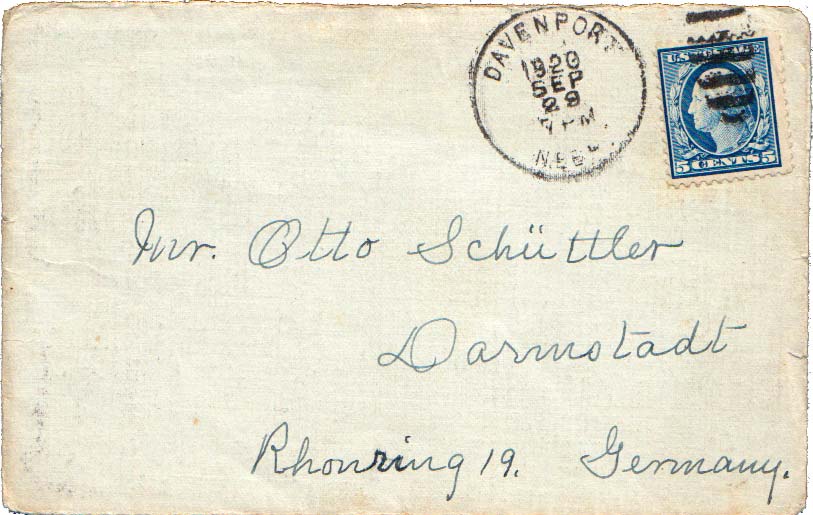 DAVENPORT
1920
SEP
9
PM
NEBR
U.S. POSTAGE
5 CENTS 5
Mr. Otto Schüttler
Darmstadt
Rhonring 19. Germany.